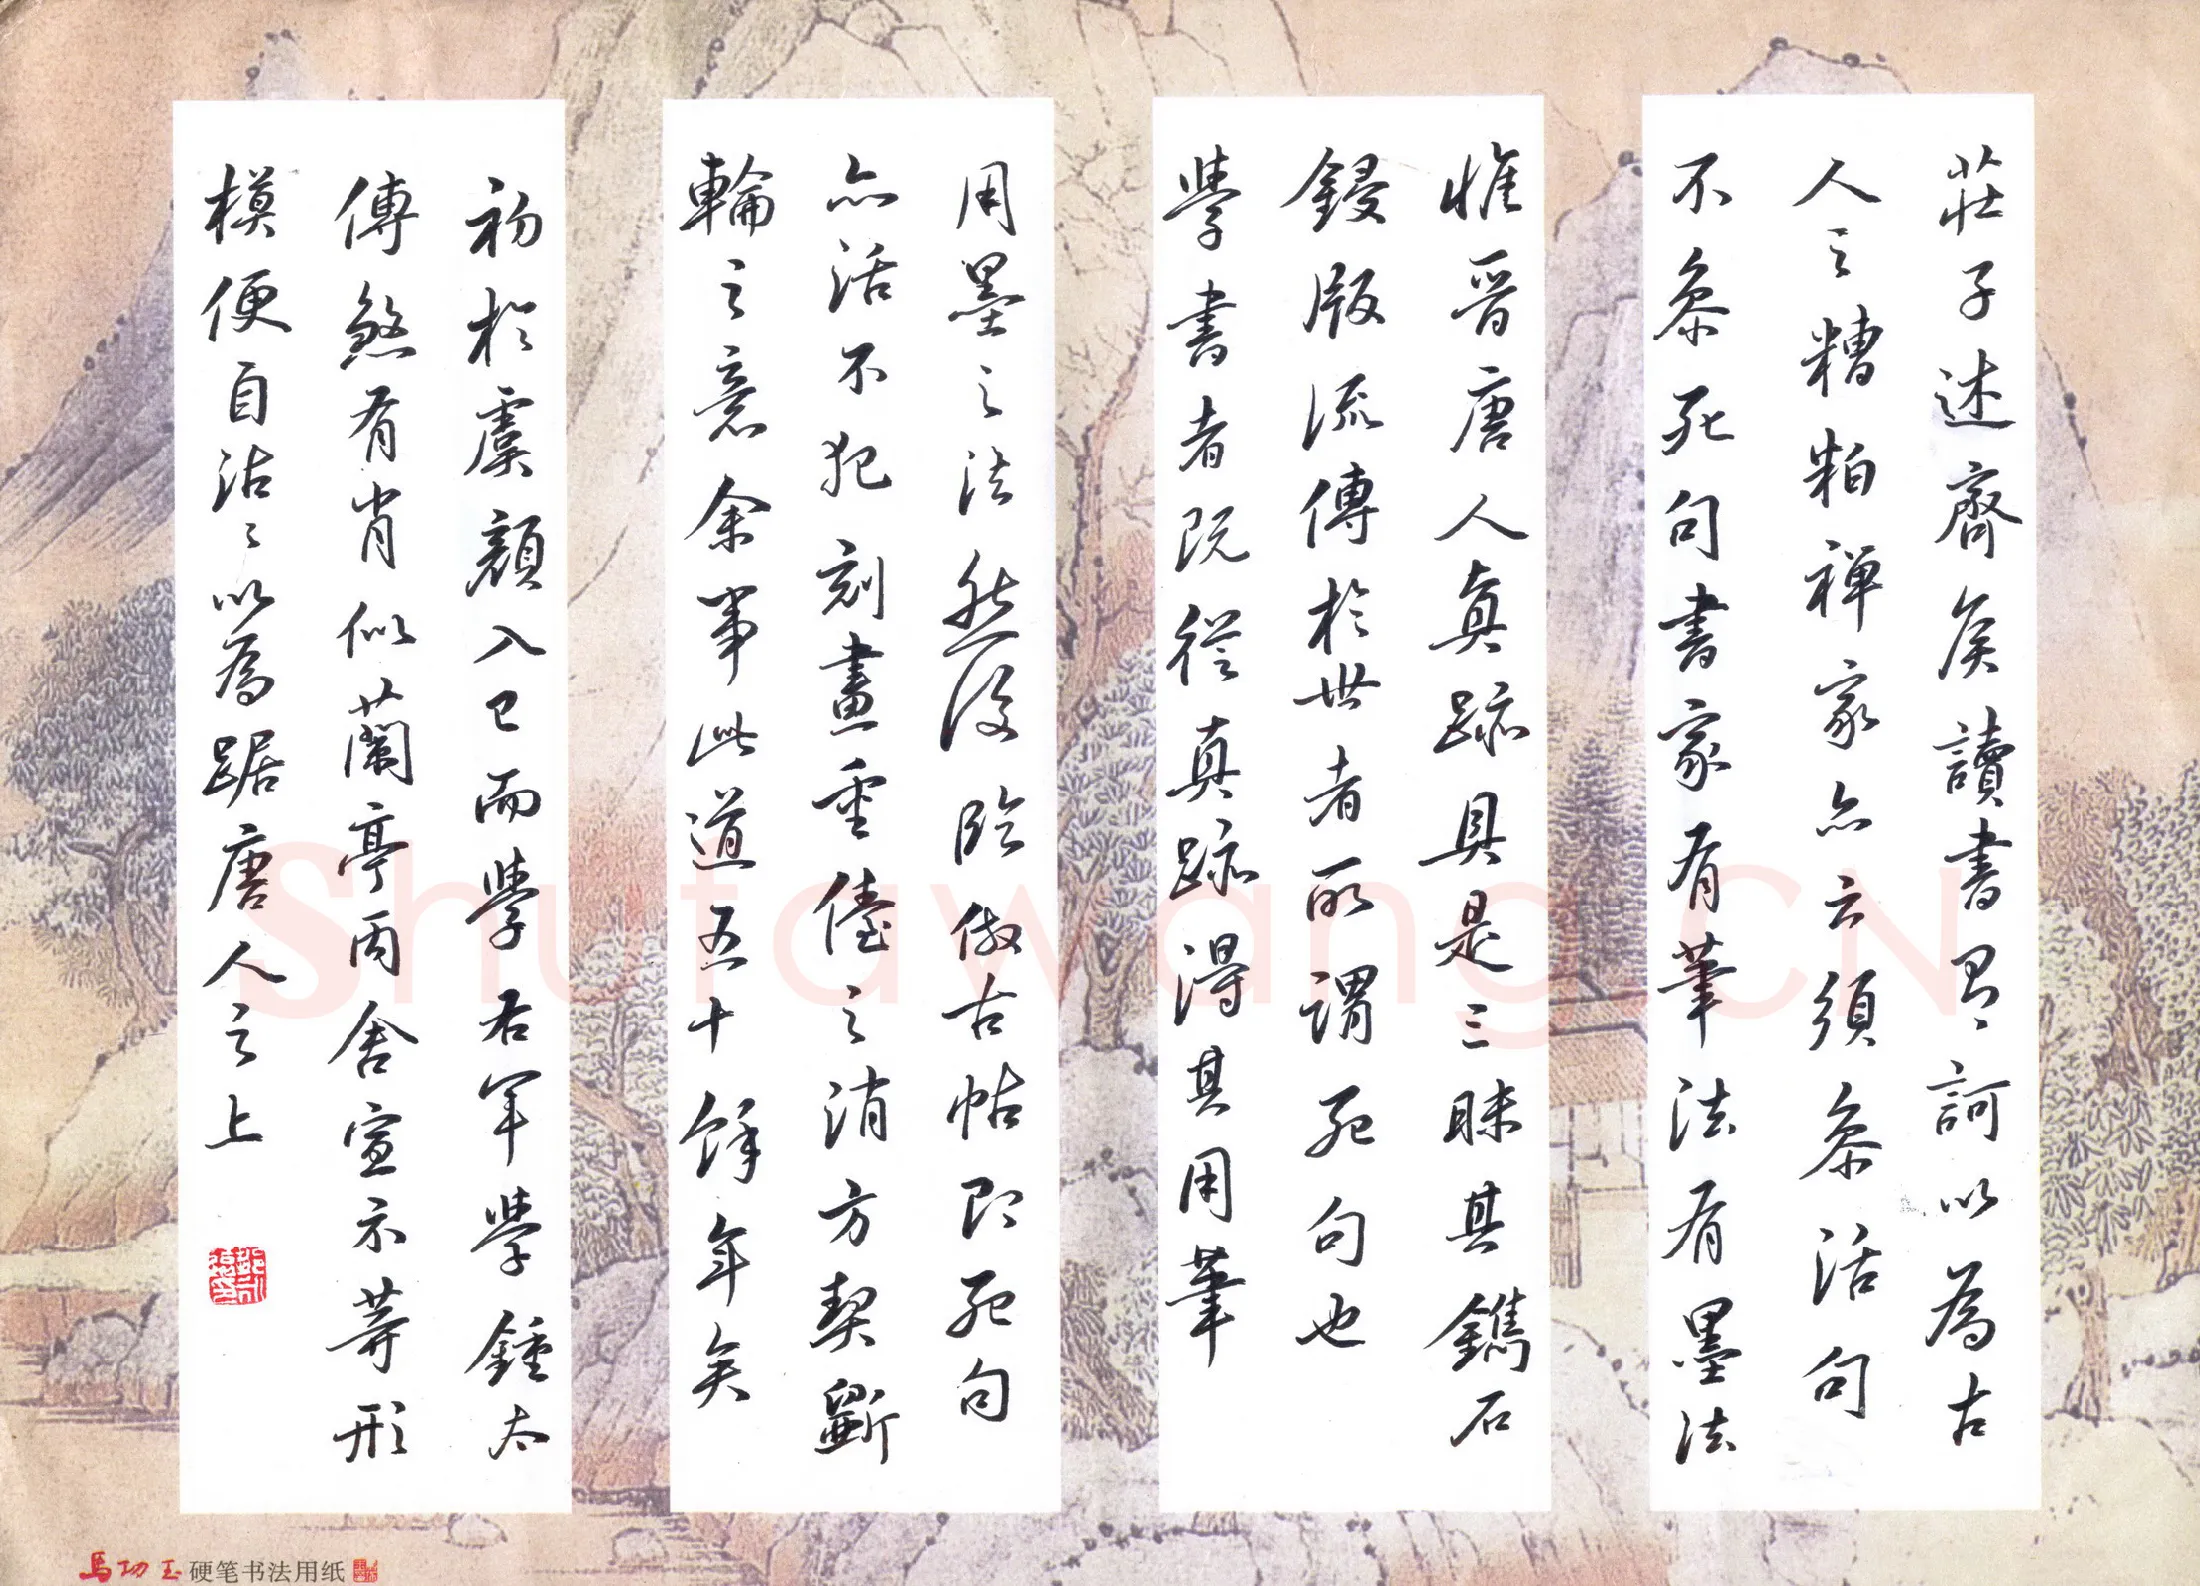 莊子述齊侯讀書有訶以為古
人之糟粕禪家亦云須叅活句
不叅死句書家有筆法有墨法
惟晉唐人真跡具是三昧其鐫石
鋟版流傳於世者所謂死句也
學書者既從真跡得其用筆
用墨之法然後臨倣古帖即死句
亦活不犯刻畫重儓之消方契斲
輪之意余事此道五十餘年矣
初於虞顏入已而學右軍學鍾太
傅煞有肖似蘭亭丙舍宣示等形
模便自沾沾以為踞唐人之上
馬功玉硬笔书法用纸
Shufawang.CN